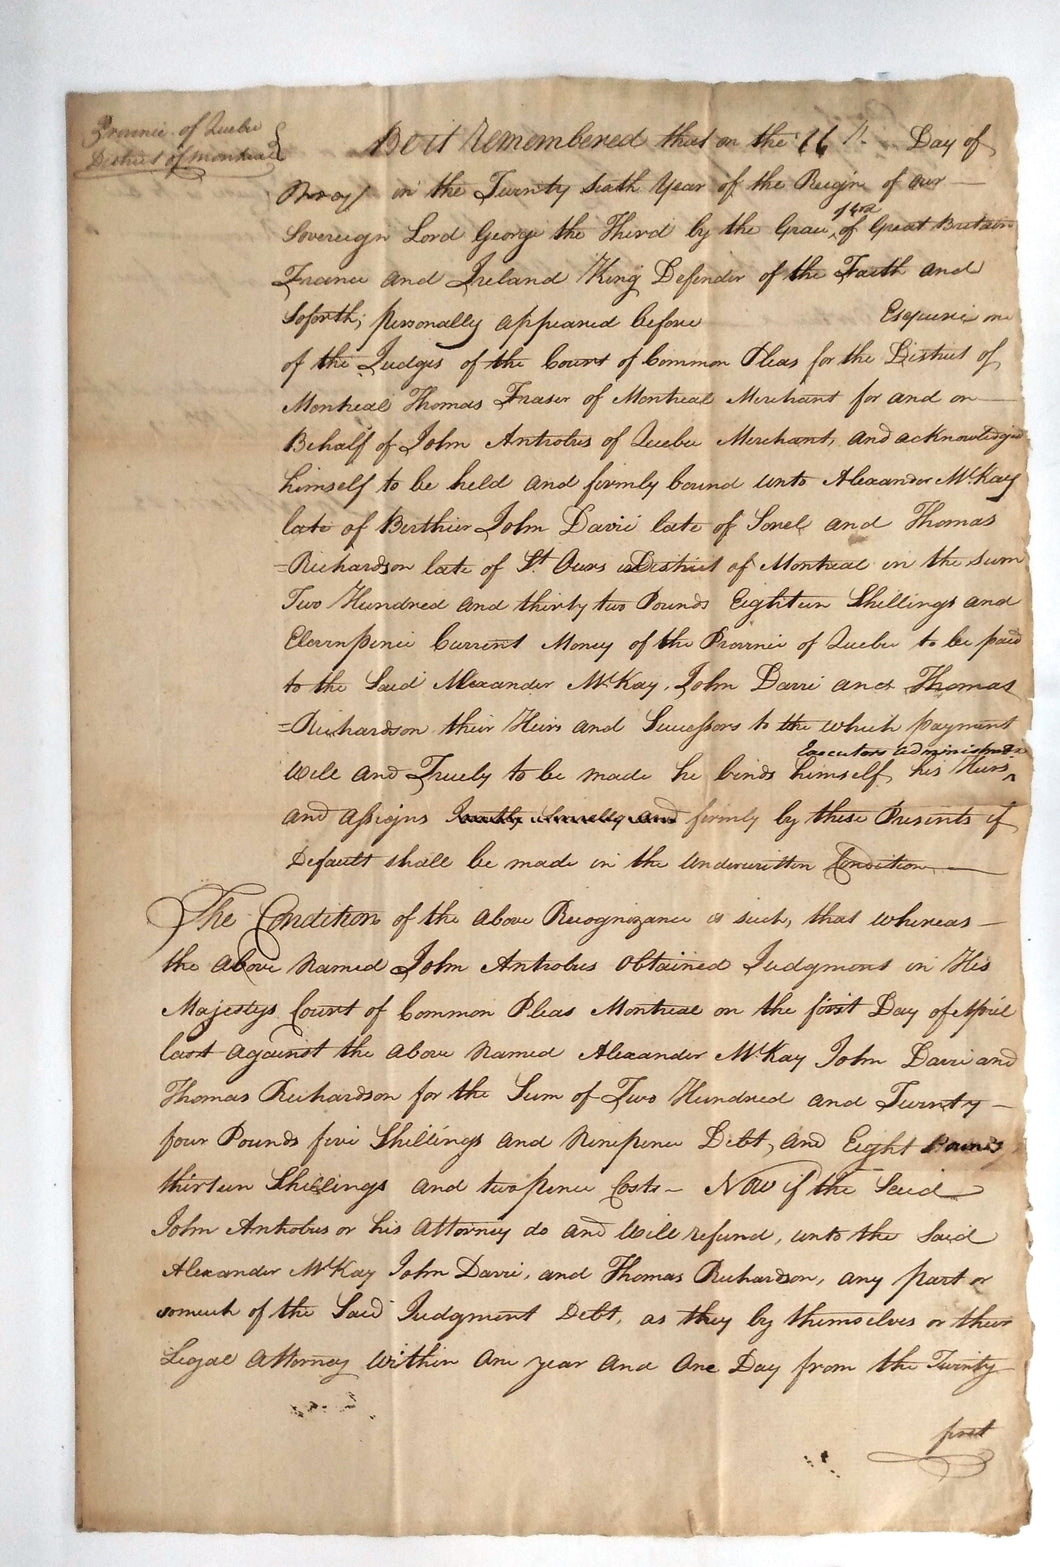 Province of Quebec
District of Montreal
Be it Remembered that on the 16th. Day of
May in the Twenty Sixth Year of the Reign of our
Sovereign Lord George the Third by the Grace of God of Great Britain
France and Ireland King Defender of the Faith and
Soforth; personally appeared before Esquire one
of the Judges of the Court of Common Pleas for the District of
Montreal Thomas Fraser of Montreal Merchant for and on
Behalf of John Antrobus of Quebec Merchant, and acknowledged
himself to be held and firmly bound unto Alexander McKay
late of Berthier John Davie late of Sorel and Thomas
=Richardson late of St. Ours District of Montreal in the sum
Two Hundred and thirty two Pounds Eighteen Shillings and
Elevenpence Current Money of the Province of Quebec to be paid
to the Said Alexander McKay, John Davie and Thomas
=Richardson their Heirs and Successors to the which payment
Will and Truely to be made he binds himself, his Heirs Executors Administrators
and assigns Jointly Severally and firmly by these Presents if
Default shall be made in the underwritten Condition
The Condition of the above Recognizance is such, that whereas
the above Named John Antrobus obtained Judgment in His
Majestys Court of Common Pleas Montreal on the first Day of April
last against the above Named Alexander McKay John Davie and
Thomas Richardson for the Sum of Two Hundred and Twenty
four Pounds five Shillings and Ninepence Debt, and Eight Pounds
thirteen Shillings and twopence Costs - Now if the Said
John Antrobus or his Attorney do and will refund, unto the Said
Alexander McKay John Davie, and Thomas Richardson, any part or
somuch of the Said Judgment Debt, as they by themselves or their
Legal Attorney Within One year and One Day from the Twenty
first